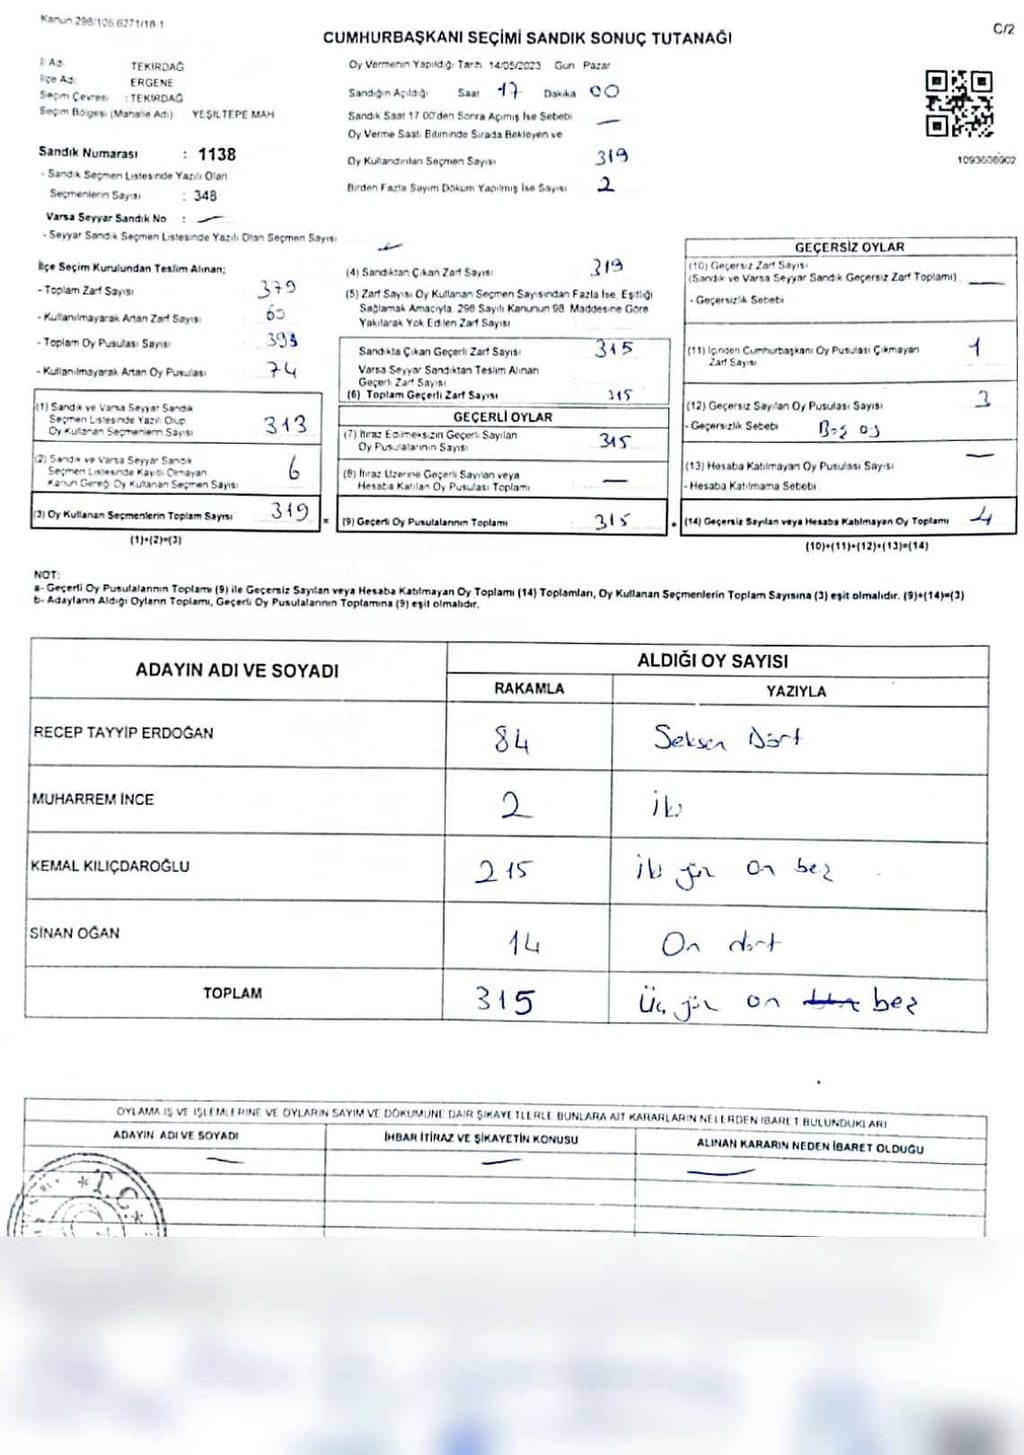 Kanun 298/105 6271/18-1
C/2
CUMHURBAŞKANI SEÇİMİ SANDIK SONUÇ TUTANAĞI
İl Adı: TEKİRDAĞ
İlçe Adı: ERGENE
Seçim Çevresi : TEKİRDAĞ
Seçim Bölgesi (Mahalle Adı) YEŞİLTEPE MAH
Sandık Numarası : 1138
- Sandık Seçmen Listesinde Yazılı Olan
Seçmenlerin Sayısı : 348
Varsa Seyyar Sandık No : —
- Seyyar Sandık Seçmen Listesinde Yazılı Olan Seçmen Sayısı —
Oy Vermenin Yapıldığı Tarih 14/05/2023 Gün Pazar
Sandığın Açıldığı Saat 17 Dakika 00
Sandık Saat 17 00'den Sonra Açımış İse Sebebi —
Oy Verme Saati Bitiminde Sırada Bekleyen ve
Oy Kullandırılan Seçmen Sayısı 319
Birden Fazla Sayım Döküm Yapılmış İse Sayısı 2
1093608902
İlçe Seçim Kurulundan Teslim Alınan;
- Toplam Zarf Sayısı 379
- Kullanılmayarak Artan Zarf Sayısı 60
- Toplam Oy Pusulası Sayısı 393
- Kullanılmayarak Artan Oy Pusulası 74
(1) Sandık ve Varsa Seyyar Sandık
Seçmen Listesinde Yazılı Olup
Oy Kullanan Seçmenlerin Sayısı 313
(2) Sandık ve Varsa Seyyar Sandık
Seçmen Listesinde Kayıtlı Olmayan
Kanun Gereği Oy Kullanan Seçmen Sayısı 6
(3) Oy Kullanan Seçmenlerin Toplam Sayısı 319 =
(1)+(2)=(3)
(4) Sandıktan Çıkan Zarf Sayısı 319
(5) Zarf Sayısı Oy Kullanan Seçmen Sayısından Fazla İse, Eşitliği
Sağlamak Amacıyla, 298 Sayılı Kanunun 98. Maddesine Göre
Yakılarak Yok Edilen Zarf Sayısı
Sandıkta Çıkan Geçerli Zarf Sayısı 315
Varsa Seyyar Sandıktan Teslim Alınan
Geçerli Zarf Sayısı
(6) Toplam Geçerli Zarf Sayısı 315
GEÇERLİ OYLAR
(7) İtiraz Edilmeksizin Geçerli Sayılan
Oy Pusulalarının Sayısı 315
(8) İtiraz Üzerine Geçerli Sayılan veya
Hesaba Katılan Oy Pusulası Toplamı —
(9) Geçerli Oy Pusulalarının Toplamı 315 +
GEÇERSİZ OYLAR
(10) Geçersiz Zarf Sayısı
(Sandık ve Varsa Seyyar Sandık Geçersiz Zarf Toplamı) —
- Geçersizlik Sebebi
(11) İçinden Cumhurbaşkanı Oy Pusulası Çıkmayan
Zarf Sayısı 1
(12) Geçersiz Sayılan Oy Pusulası Sayısı 3
- Geçersizlik Sebebi Boş oy
(13) Hesaba Katılmayan Oy Pusulası Sayısı —
- Hesaba Katılmama Sebebi
(14) Geçersiz Sayılan veya Hesaba Katılmayan Oy Toplamı 4
(10)+(11)+(12)+(13)=(14)
NOT:
a- Geçerli Oy Pusulalarının Toplamı (9) ile Geçersiz Sayılan veya Hesaba Katılmayan Oy Toplamı (14) Toplamları, Oy Kullanan Seçmenlerin Toplam Sayısına (3) eşit olmalıdır. (9)+(14)=(3)
b- Adayların Aldığı Oyların Toplamı, Geçerli Oy Pusulalarının Toplamına (9) eşit olmalıdır.
ADAYIN ADI VE SOYADI
ALDIĞI OY SAYISI
RAKAMLA YAZIYLA
RECEP TAYYİP ERDOĞAN 84 Seksen Dört
MUHARREM İNCE 2 iki
KEMAL KILIÇDAROĞLU 215 iki yüz on beş
SİNAN OĞAN 14 On dört
TOPLAM 315 Üç yüz on beş
OYLAMA İŞ VE İŞLEMLERİNE VE OYLARIN SAYIM VE DÖKÜMÜNE DAİR ŞİKAYETLERLE BUNLARA AİT KARARLARIN NELERDEN İBARET BULUNDUKLARI
ADAYIN ADI VE SOYADI İHBAR İTİRAZ VE ŞİKAYETİN KONUSU ALINAN KARARIN NEDEN İBARET OLDUĞU
— — —
* T.C. *